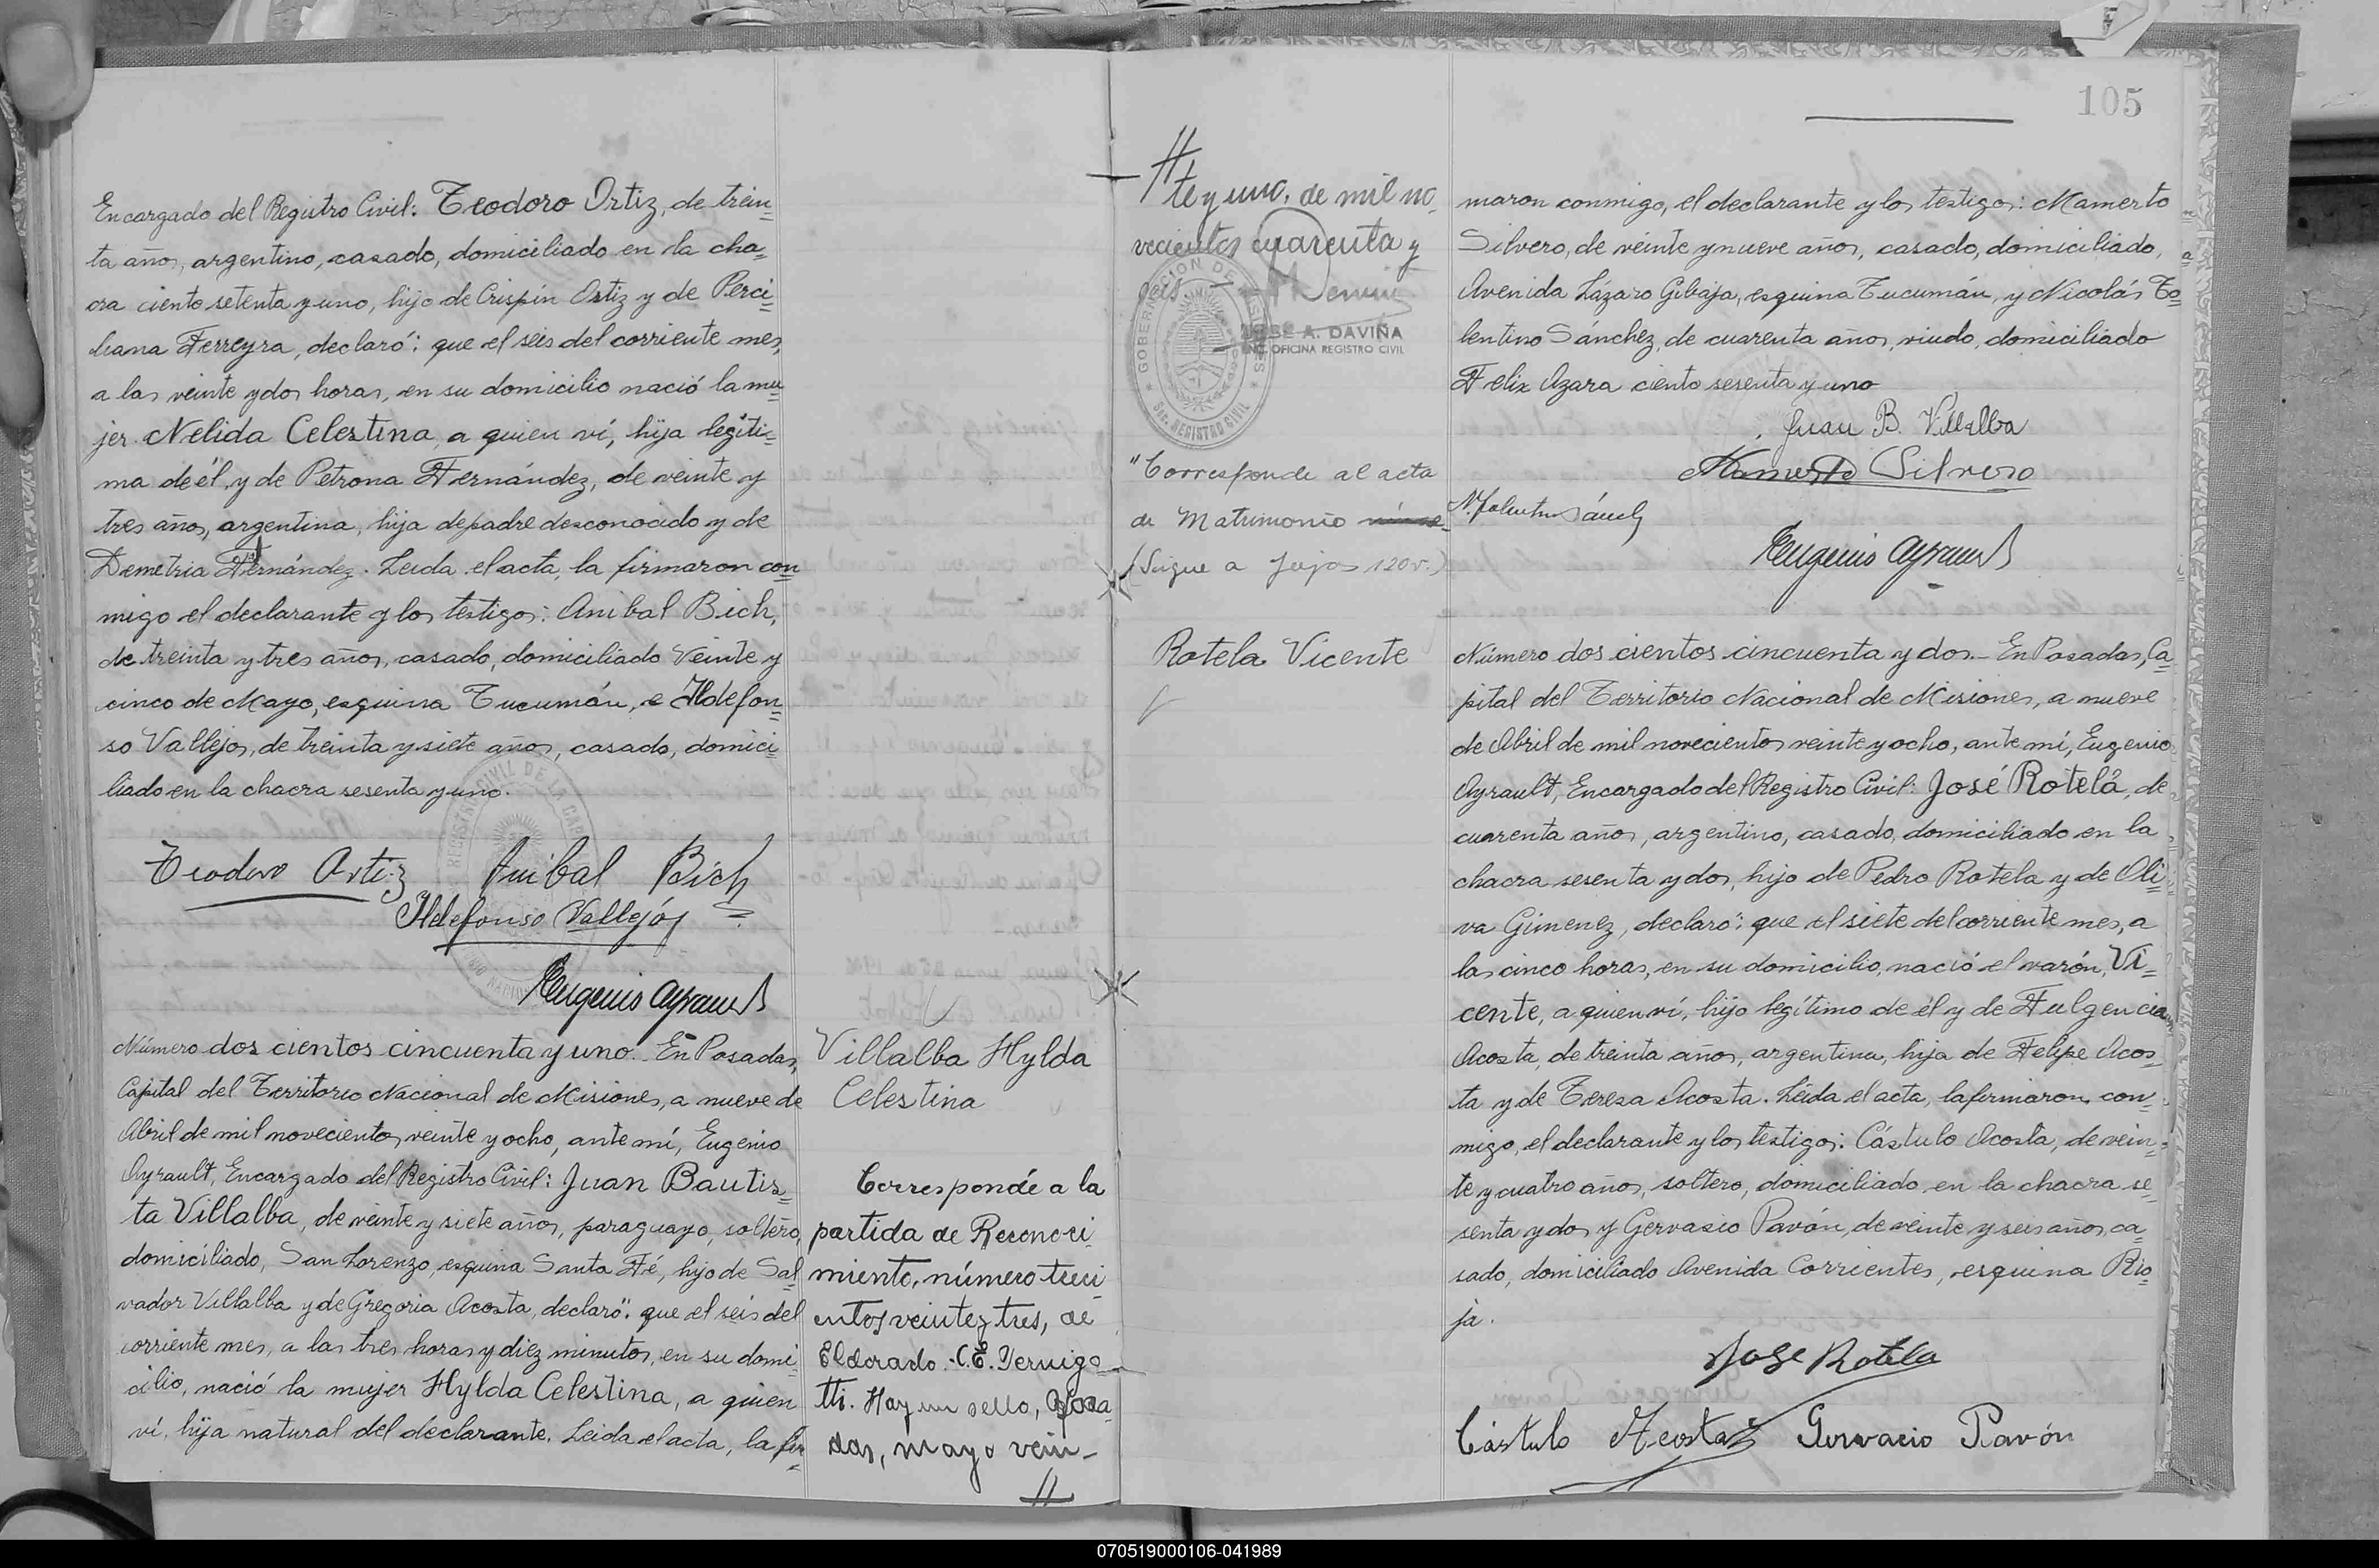 Encargado del Registro Civil: Teodoro Ortiz, de trein=
ta años, argentino, casado, domiciliado en la cha=
cra ciento setenta y uno, hijo de Crispín Ortiz y de Perci=
liana Ferreyra, declaró: que el seis del corriente mes,
a las veinte y dos horas, en su domicilio nació la mu=
jer Nelida Celestina a quien ví, hija legíti=
ma de él y de Petrona Fernández, de veinte y
tres años, argentina, hija de padre desconocido y de
Demetria Fernández. Leida el acta, la firmaron con=
migo el declarante y los testigos: Anibal Bich,
de treinta y tres años, casado, domiciliado Veinte y
cinco de Mayo, esquina Tucumán, e Ildefon=
so Vallejos, de treinta y siete años, casado, domici=
liado en la chacra sesenta y uno.
Teodoro Ortiz Anibal Bich
Ildefonso Vallejós
Eugenio Ayrault
Número dos cientos cincuenta y uno. En Posadas,
Capital del Territorio Nacional de Misiones, a nueve de
Abril de mil novecientos veinte y ocho, ante mí, Eugenio
Ayrault, Encargado del Registro Civil: Juan Bautis=
ta Villalba, de veinte y siete años, paraguayo, soltero,
domiciliado, San Lorenzo, esquina Santa Fé, hijo de Sal=
vador Villalba y de Gregoria Acosta, declaró: que el seis del
corriente mes, a las tres horas y diez minutos, en su domi=
cilio, nació la mujer Hylda Celestina, a quien
ví, hija natural del declarante. Leida el acta, la fir=
Villalba Hylda
Celestina
Corresponde a la
partida de Reconoci
miento, número treci
entos veinte y tres, de
Eldorado. C.E. Vernigo
tti. Hay un sello, Posa
das, mayo vein-
//
105
//
te y uno, de mil no
vecientos cuarenta y
seis
GOBERNACION DE MISIONES
SEC. REGISTRO CIVIL
JOSE A. DAVIÑA
ENC. OFICINA REGISTRO CIVIL
"Corresponde al acta
de Matrimonio
(Sigue a fojas 120 v.)
Rotela Vicente
maron conmigo, el declarante y los testigos: Mamerto
Silvero, de veinte y nueve años, casado, domiciliado,
Avenida Lázaro Gibaja, esquina Tucumán, y Nicolás To=
lentino Sánchez, de cuarenta años, viudo, domiciliado
Felix Azara ciento sesenta y uno
Juan B. Villalba
Mamerto Silvero
N. Tolentino Sánchez
Eugenio Ayrault
Número dos cientos cincuenta y dos. En Posadas, Ca=
pital del Territorio Nacional de Misiones, a nueve
de Abril de mil novecientos veinte y ocho, ante mí, Eugenio
Ayrault, Encargado del Registro Civil: José Rotela, de
cuarenta años, argentino, casado, domiciliado en la
chacra sesenta y dos, hijo de Pedro Rotela y de Oli=
va Gimenez, declaró: que el siete del corriente mes, a
las cinco horas, en su domicilio, nació el varón, Vi=
cente, a quien ví, hijo legítimo de él y de Fulgencia
Acosta, de treinta años, argentina, hija de Felipe Acos=
ta y de Teresa Acosta. Leída el acta, la firmaron con=
migo, el declarante y los testigos: Cástulo Acosta, de vein=
te y cuatro años, soltero, domiciliado en la chacra se=
senta y dos y Gervasio Pavón, de veinte y seis años, ca=
sado, domiciliado Avenida Corrientes, esquina Rio=
ja.
Jose Rotela
Cástulo Acosta Gervacio Pavón
070519000106-041989